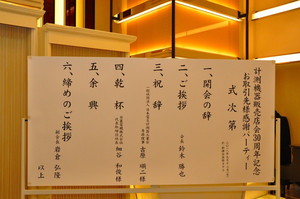 計測機器販売店会30周年記念
お取引先様感謝パーティー
式次第
一、開会の辞
二、ご挨拶
会長 鈴木 勝也
三、祝辞
吉原 順二様
四、乾杯
細谷 和俊様
五、余興
六、締めのご挨拶
副会長 岩倉 弘隆
以上